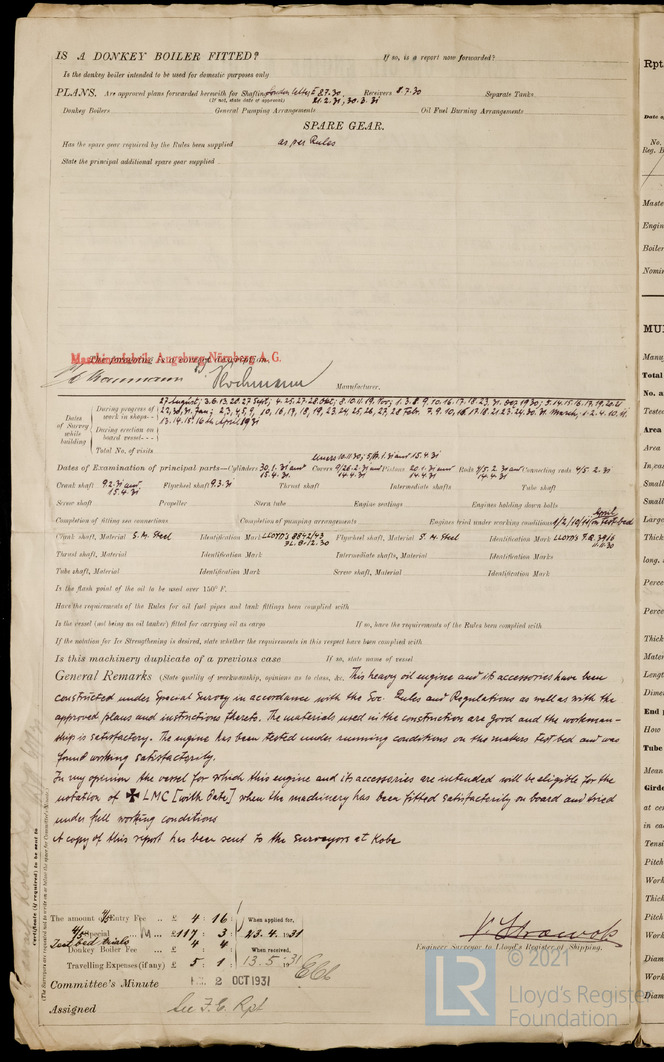 IS A DONKEY BOILER FITTED? If so, is a report now forwarded?
Is the donkey boiler intended to be used for domestic purposes only
PLANS. Are approved plans forwarded herewith for Shafting London letters E 8.7.30. Receivers 8.7.30 Separate Tanks
(If not, state date of approval) 21.2.31, 30.3.31
Donkey Boilers General Pumping Arrangements Oil Fuel Burning Arrangements
SPARE GEAR.
Has the spare gear required by the Rules been supplied as per Rules
State the principal additional spare gear supplied
The foregoing is a correct description,
Maschinenfabrik Augsburg-Nürnberg A.G.
Manufacturer.
Dates of Survey while building
During progress of work in shops-- 27 August; 3.6.13.28.27 Sept; 4.25.27.28. Oct; 8.10.11.19. Nov; 1.3.8.9.10.16.17.18.23.31. Dec 1930; 5.14.15.16.17.19.20.21
22,30,31, Jan; 2,3,4,5,9,10,16,17,18,19,23,24,25,26,27,28 Febr. 7.9.10.16.17.18.21.23.24.30.31 March, 1.2.4.10.11.
13.14.15.16th April 1931
During erection on board vessel---
Total No. of visits
Liners 10.11.30; 5/8.1.31 and 15.4.31
Dates of Examination of principal parts—Cylinders 30.1.31 and 15.4.31. Covers 9/26.2.31 and 14.4.31 Pistons 20.1.31 and 14.4.31 Rods 4/5.2.31 and 14.4.31 Connecting rods 4/5.2.31
Crank shaft 9.2.31 and 15.4.31 Flywheel shaft 9.3.31 Thrust shaft Intermediate shafts Tube shaft
Screw shaft Propeller Stern tube Engine seatings Engines holding down bolts
Completion of fitting sea connections Completion of pumping arrangements Engines tried under working conditions 1/2/10/11 April on test bed
Crank shaft, Material S.M. Steel Identification Mark LLOYD'S 8842/43 Flywheel shaft, Material S.M. Steel Identification Mark LLOYD'S
Thrust shaft, Material Identification Mark Intermediate shafts, Material Identification Marks
Tube shaft, Material Identification Mark Screw shaft, Material Identification Mark
Is the flash point of the oil to be used over 150° F.
Have the requirements of the Rules for oil fuel pipes and tank fittings been complied with
Is the vessel (not being an oil tanker) fitted for carrying oil as cargo If so, have the requirements of the Rules been complied with
If the notation for Ice Strengthening is desired, state whether the requirements in this respect have been complied with
Is this machinery duplicate of a previous case If so, state name of vessel
General Remarks (State quality of workmanship, opinions as to class, &c. This heavy oil engine and its accessories have been
constructed under Special Survey in accordance with the Soc. Rules and Regulations as well as with the
approved plans and instructions thereto. The materials used in the construction are good and the workman-
ship is satisfactory. The engine has been tested under running conditions on the makers test bed and was
found working satisfactorily.
In my opinion the vessel for which this engine and its accessories are intended will be eligible for the
notation of ✠ LMC [with date] when the machinery has been fitted satisfactorily on board and tried
under full working conditions
A copy of this report has been sent to the Surveyors at Kobe
The amount of Entry Fee .. £ 4 : 16 When applied for,
4/5 Special ... £117 : 3 : 23.4.1931
Test bed trials
Donkey Boiler Fee ... £ 4 : 4 When received,
Travelling Expenses (if any) £ 5 : 1 : 13.5.31
Engineer Surveyor to Lloyd's Register of Shipping.
Committee's Minute 2 OCT 1931
Assigned See F.E. Rpt
© 2021
LR
Lloyd's Register
Foundation
Rpt
No.
Reg. B
Maste
Engin
Boiler
Nomin
MUL
Manuf
Total
No. a
Tested
Area
Area
In cas
Small
Small
Large
Thick
long.
Perce
Perce
Thick
Mater
Lengt
Dime
End p
How
Tube
Mean
Girde
at cen
in ea
Tensi
Pitch
Work
Thick
Pitch
Work
Diam
Work
Diam